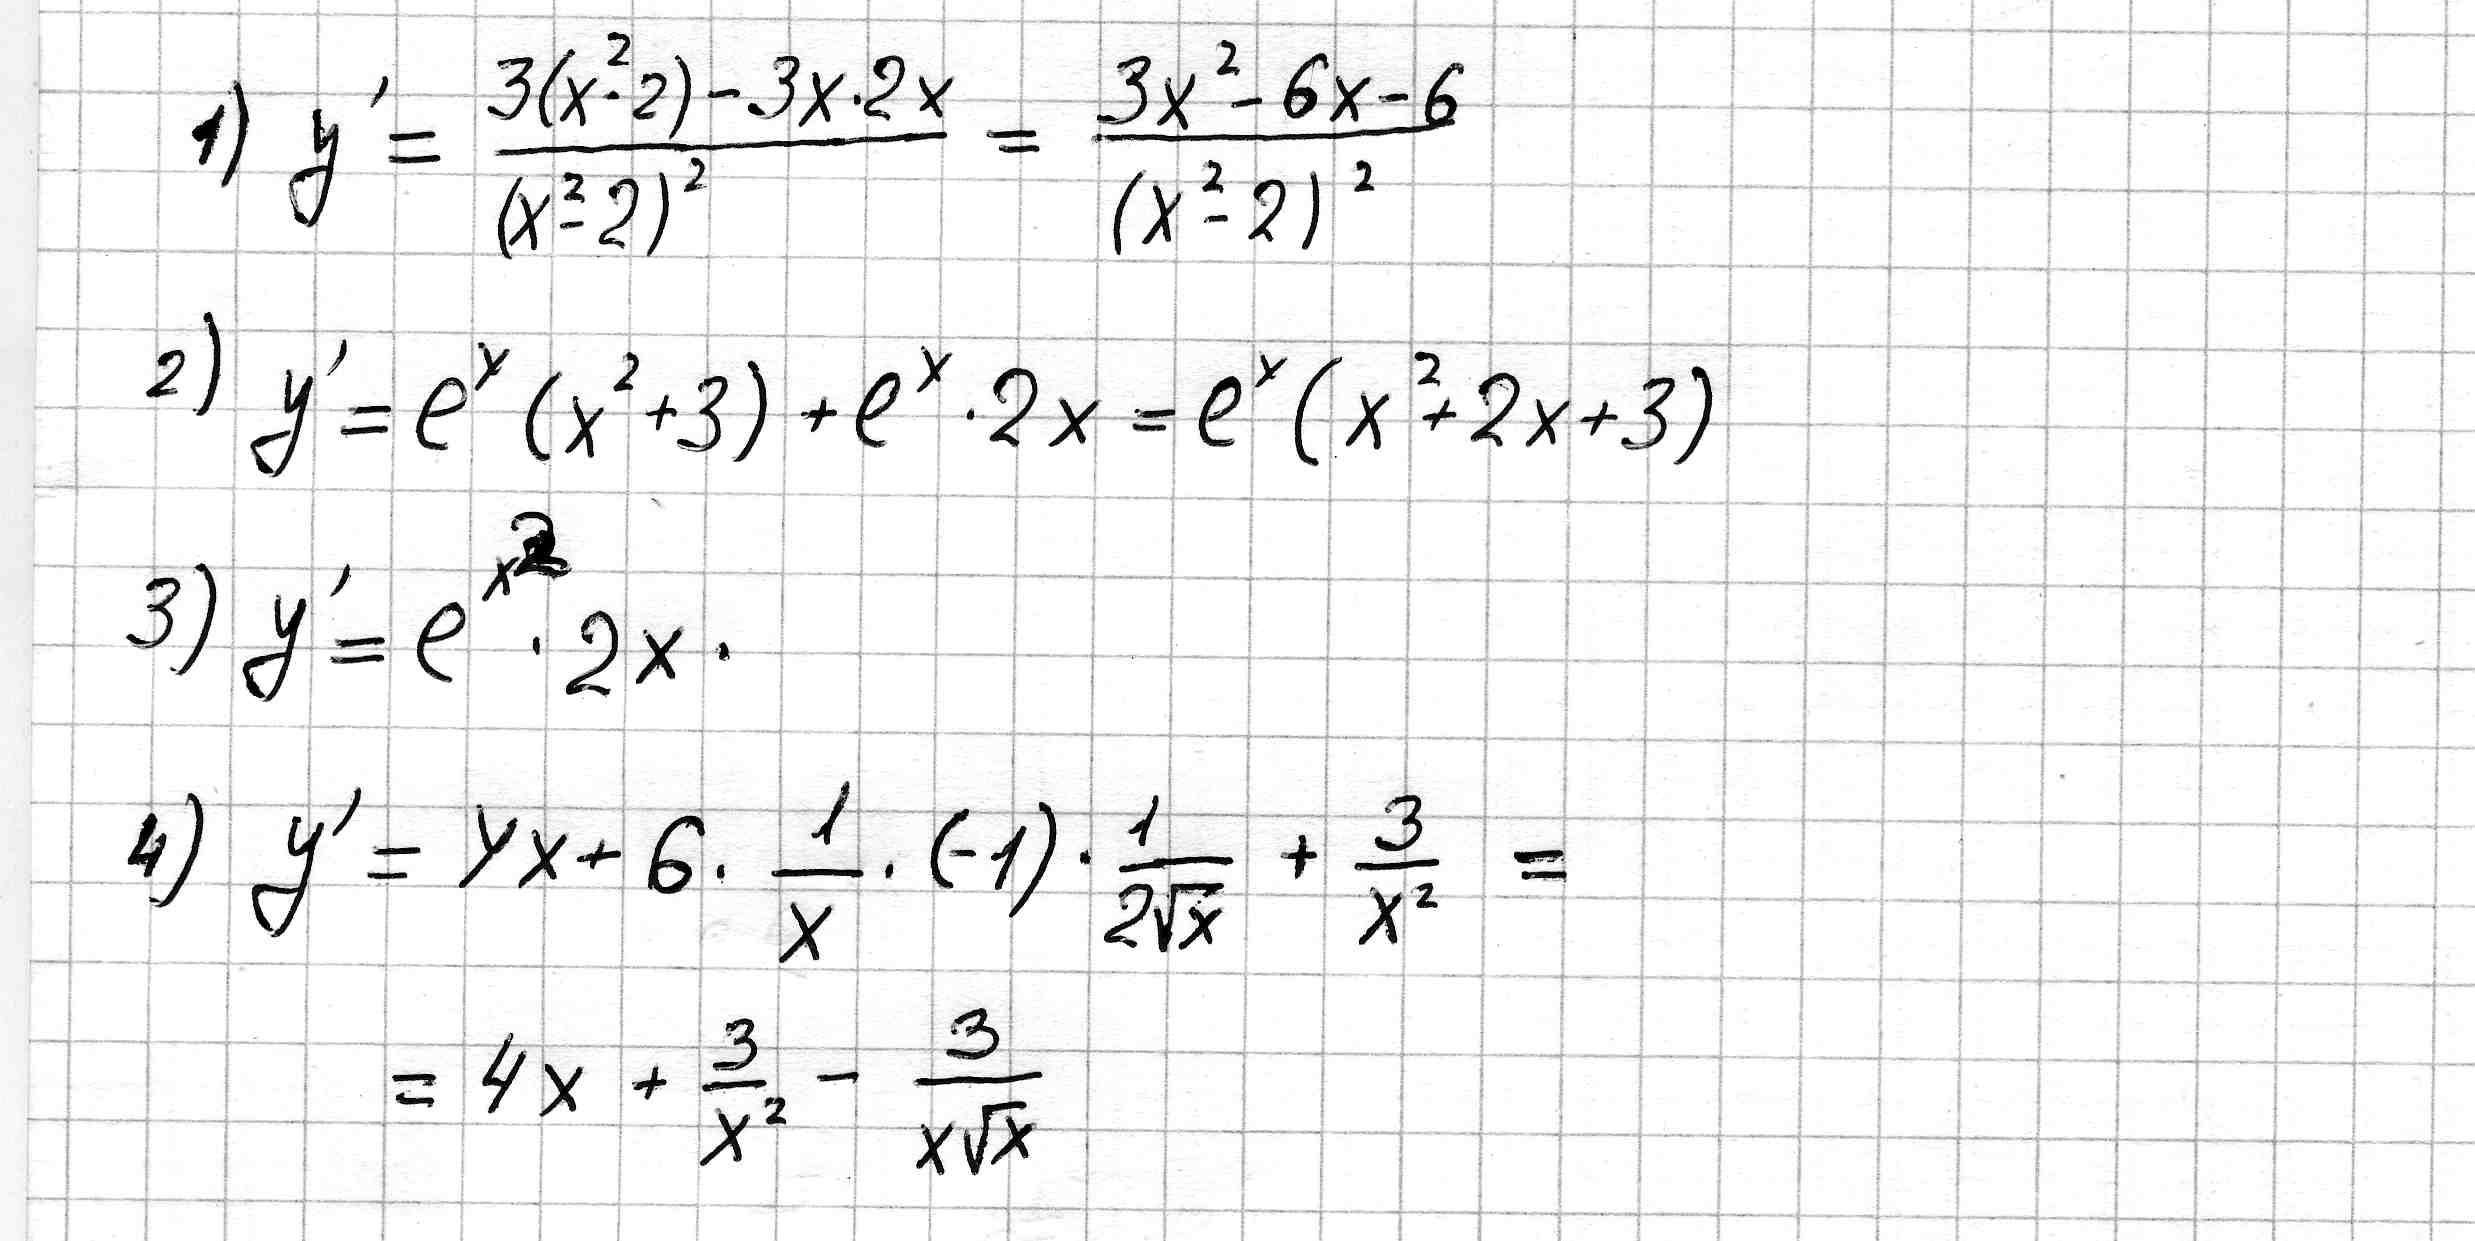 1) y' = (3(x²-2) - 3x·2x)/((x²-2)²) = (3x² - 6x - 6)/((x²-2)²)
2) y' = eˣ(x²+3) + eˣ·2x = eˣ(x²+2x+3)
3) y' = e^(x²)·2x·
4) y' = 4x + 6·1/x·(-1)·1/(2√x) + 3/x² =
= 4x + 3/x² - 3/(x√x)